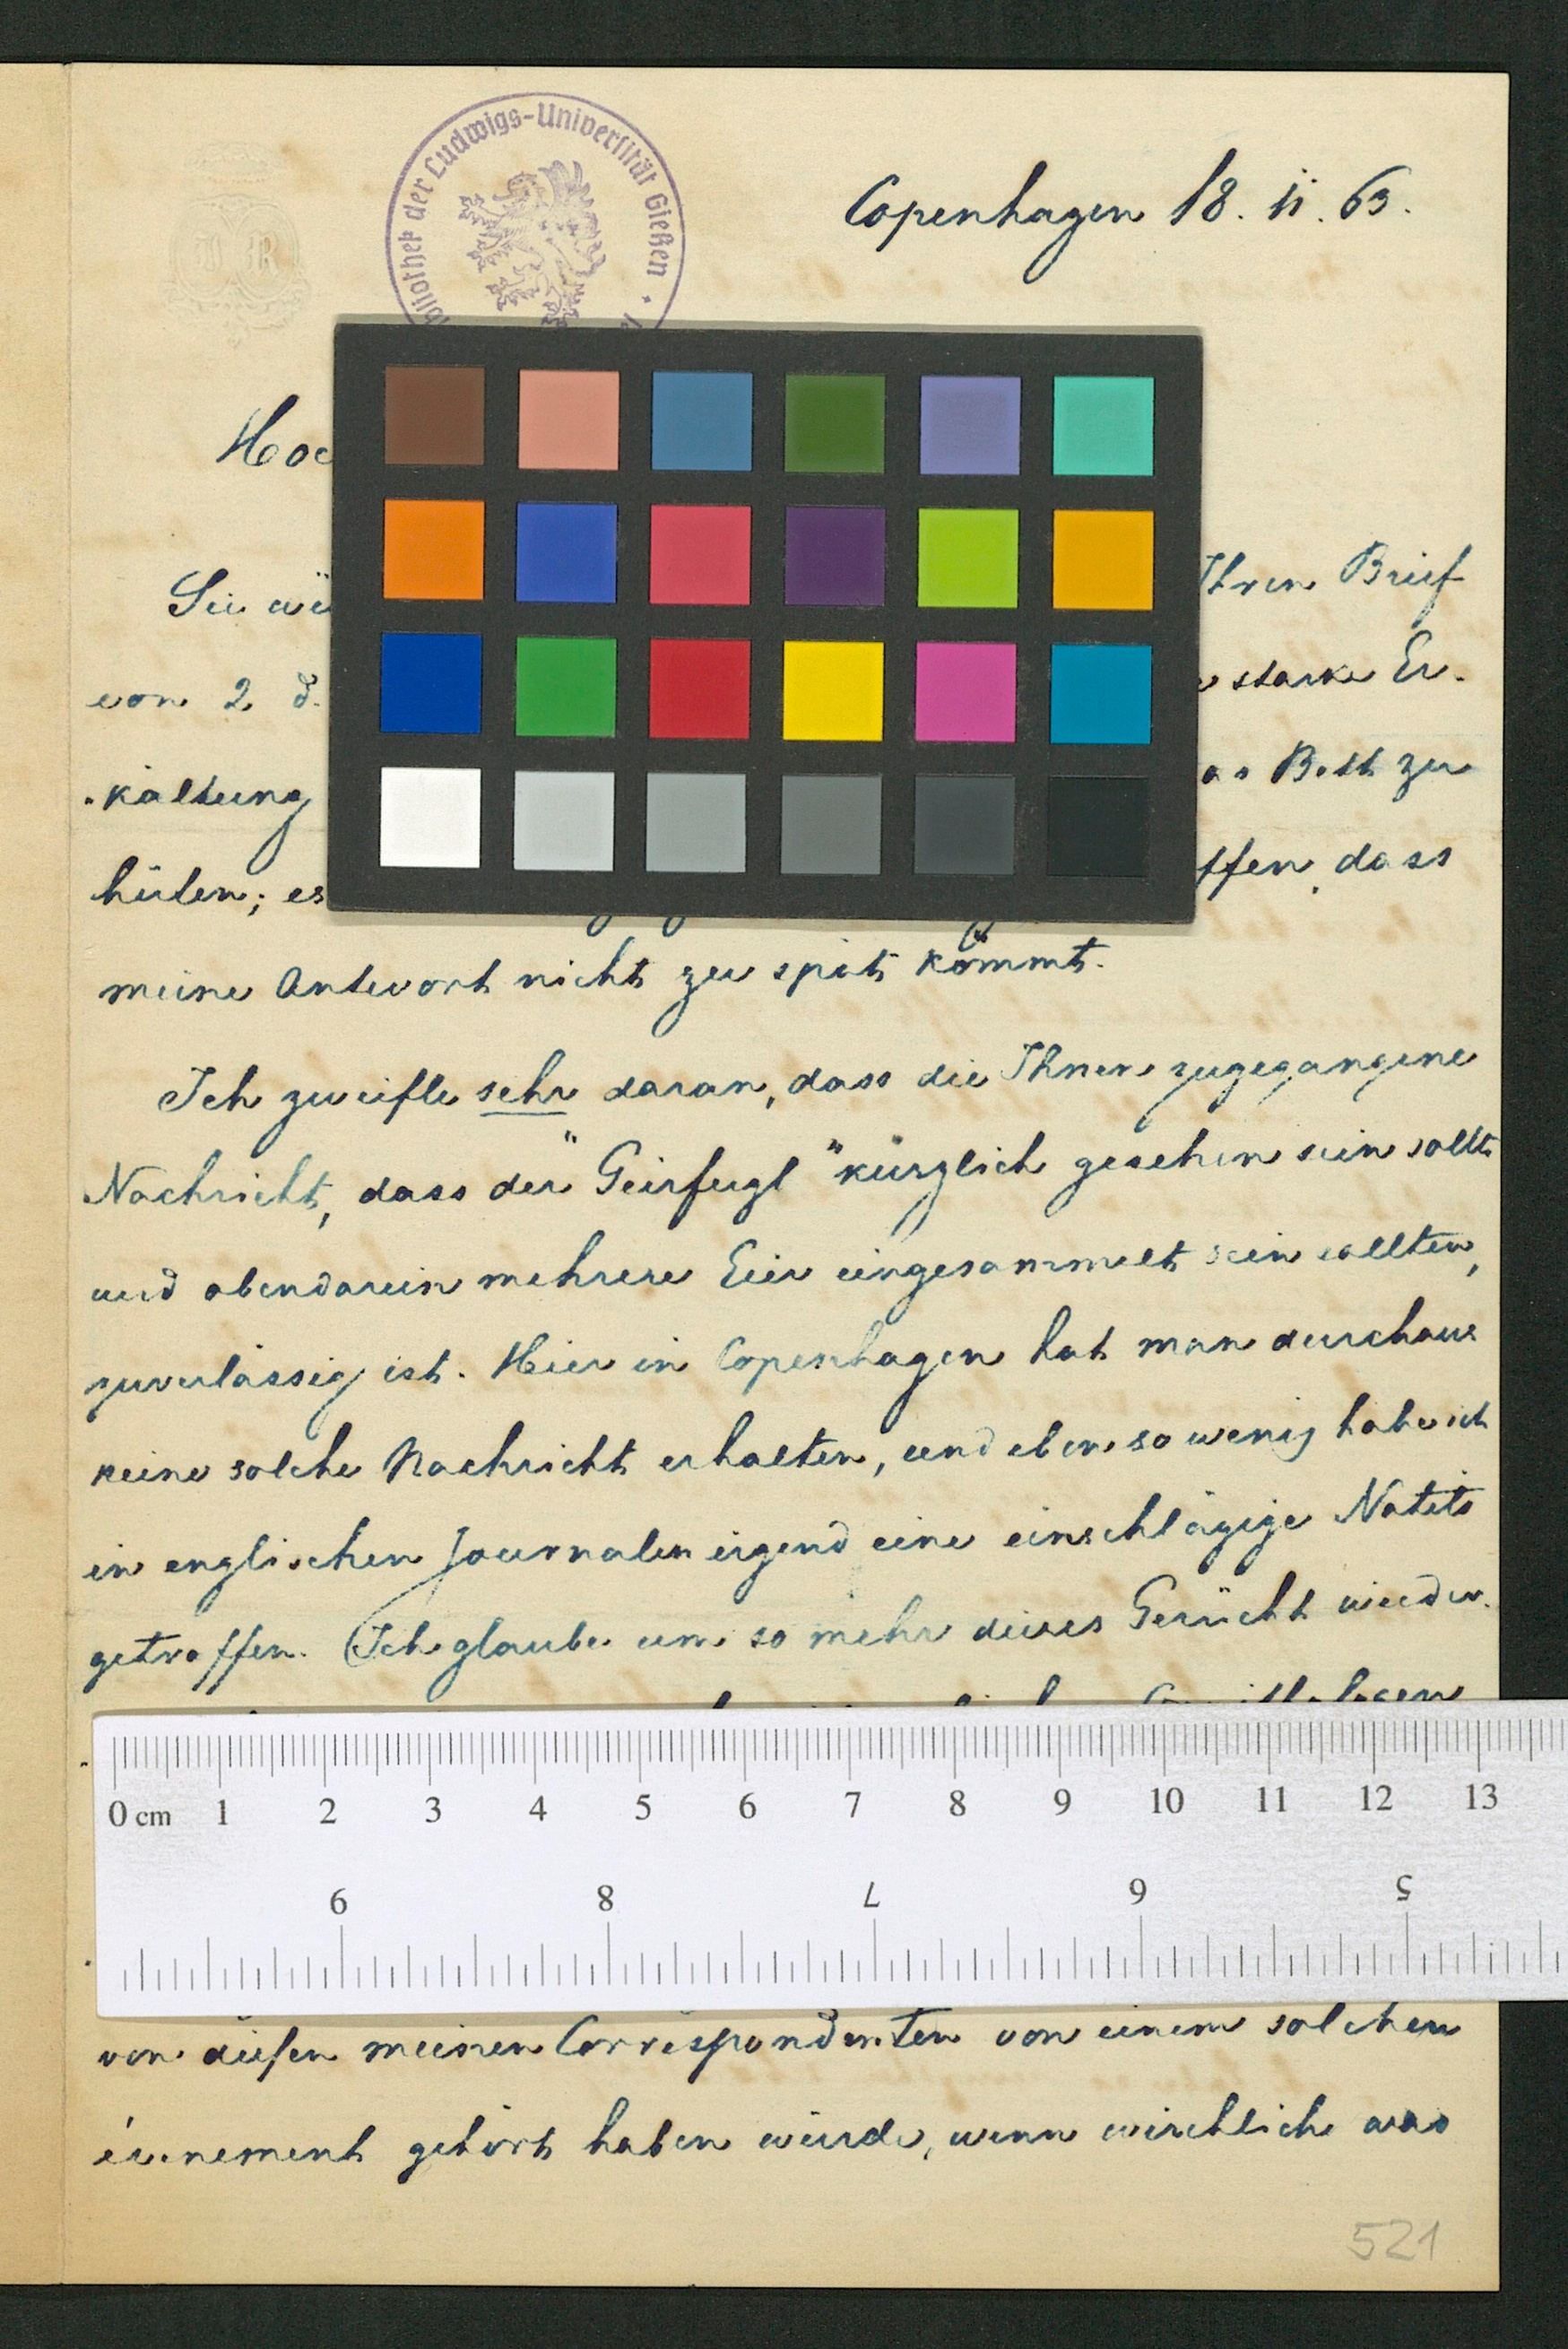 Bibliothek der Ludwigs-Universität Gießen
J R
Copenhagen 18. 11. 63.
Hoc
Sie wü Ihren Brief
von 2 d. starke Er-
-kältung Bett zu
hüten; es ffen, dass
meine Antwort nicht zu spät kömmt.
Ich zweifle sehr daran, dass die Ihnen zugegangene
Nachricht, dass der "Geirfugl" kürzlich gesehen sein sollte
und obendarein mehrere Eier eingesammelt sein sollten,
zuverlässig ist. Hier in Copenhagen hat man durchaus
keine solche Nachricht erhalten, und eben so wenig habe ich
in englischen Journalen irgend eine einschlägige Notits
getroffen. Ich glaube um so mehr dieses Gerücht wieder-
0 cm 1 2 3 4 5 6 7 8 9 10 11 12 13
9 8 7 6 5
von diesen meinen Correspondenten von einem solchen
évenement gehört haben würde, wenn wirchlich was
521